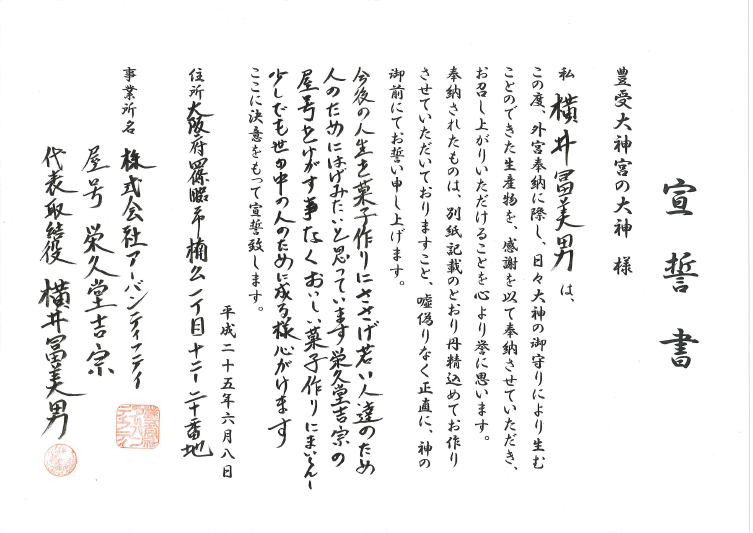 宣誓書
豊受大神宮の大神 様
私 横井冨美男 は、
この度、外宮奉納に際し、日々大神の御守りにより生む
ことのできた生産物を、感謝を以て奉納させていただき、
お召し上がりいただけることを心より誉に思います。
奉納されたものは、別紙記載のとおり丹精込めてお作り
させていただいておりますこと、嘘偽りなく正直に、神の
御前にてお誓い申し上げます。
今後の人生を菓子作りにささげ若い人達のため
人のためにはげみたいと思っています栄久堂吉宗の
屋号をけがす事なくおいしい菓子作りにまいしんし
少しでも世の中の人のために成る様心がけます
ここに決意をもって宣誓致します。
平成二十五年六月八日
住所 大阪府四條畷市楠公一丁目十二ー二十番地
事業所名 株式会社アーバンティファイ
屋号 栄久堂吉宗
代表取締役 横井冨美男